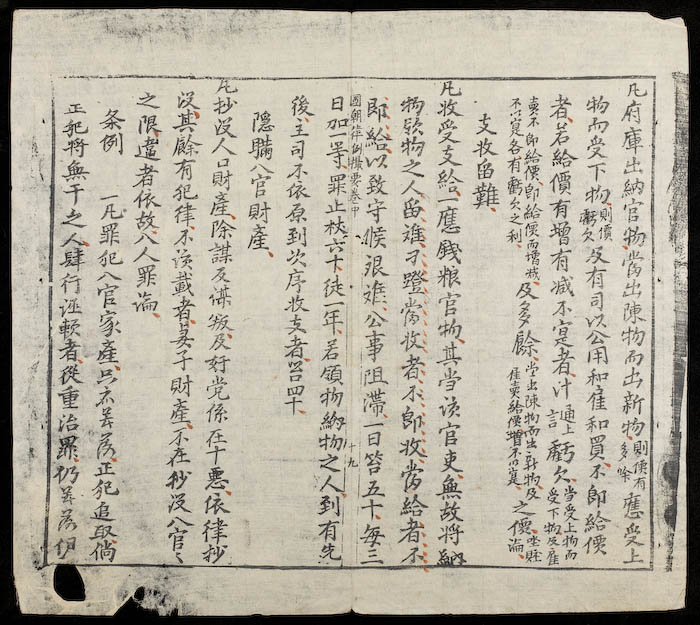 凡府庫出納官物當出陳物而出新物則價有多餘應受上
物而受下物則價虧欠及有司以公用和隹和買不即給價
者若給價有增有减不寔者計通上言虧欠當受上物而受下物及雇
賣不即給價即給價而增减不以寔各有虧欠之利及多餘當出陳物而出新物及隹賣給價增不以寔坐賍之價論
支收留難
凡收受支給一應錢粮官物其當該官吏無故將納
物領物之人留难刁蹬當收者不即收當給者不
即給以致守候艱难公事阻滯一日笞五十每三
國朝律例撮要卷中 十九
日加一等罪止杖六十徒一年若領物納物之人到有先
後主司不依原到次序收支者笞四十
隱瞞入官財產
凡抄没人口財產除謀反謀叛及奸党係在十悪依律抄
没其餘有犯律不該載者妻子財產不在抄没入官々
之限違者依故入人罪論
条例 一凡罪犯入官家產只着落正犯追取倘
正犯將無干之人肆行誣賴者從重治罪仍着落伊